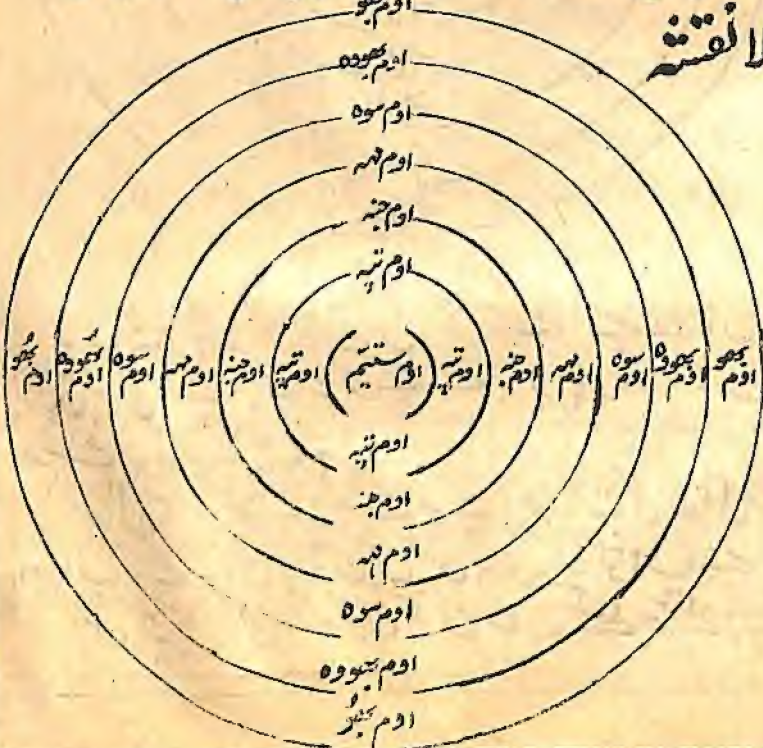 لا نقشہ
اوم بھو
اوم بھووہ
اوم سوہ
اوم مہہ
اوم جنہ
اوم تپہ
اوم بھو اوم بھووہ اوم سوہ اوم مہہ اوم جنہ اوم تپہ (اوم ستیم) اوم تپہ اوم جنہ اوم مہہ اوم سوہ اوم بھووہ اوم بھو
اوم تپہ
اوم جنہ
اوم مہہ
اوم سوہ
اوم بھووہ
اوم بھو